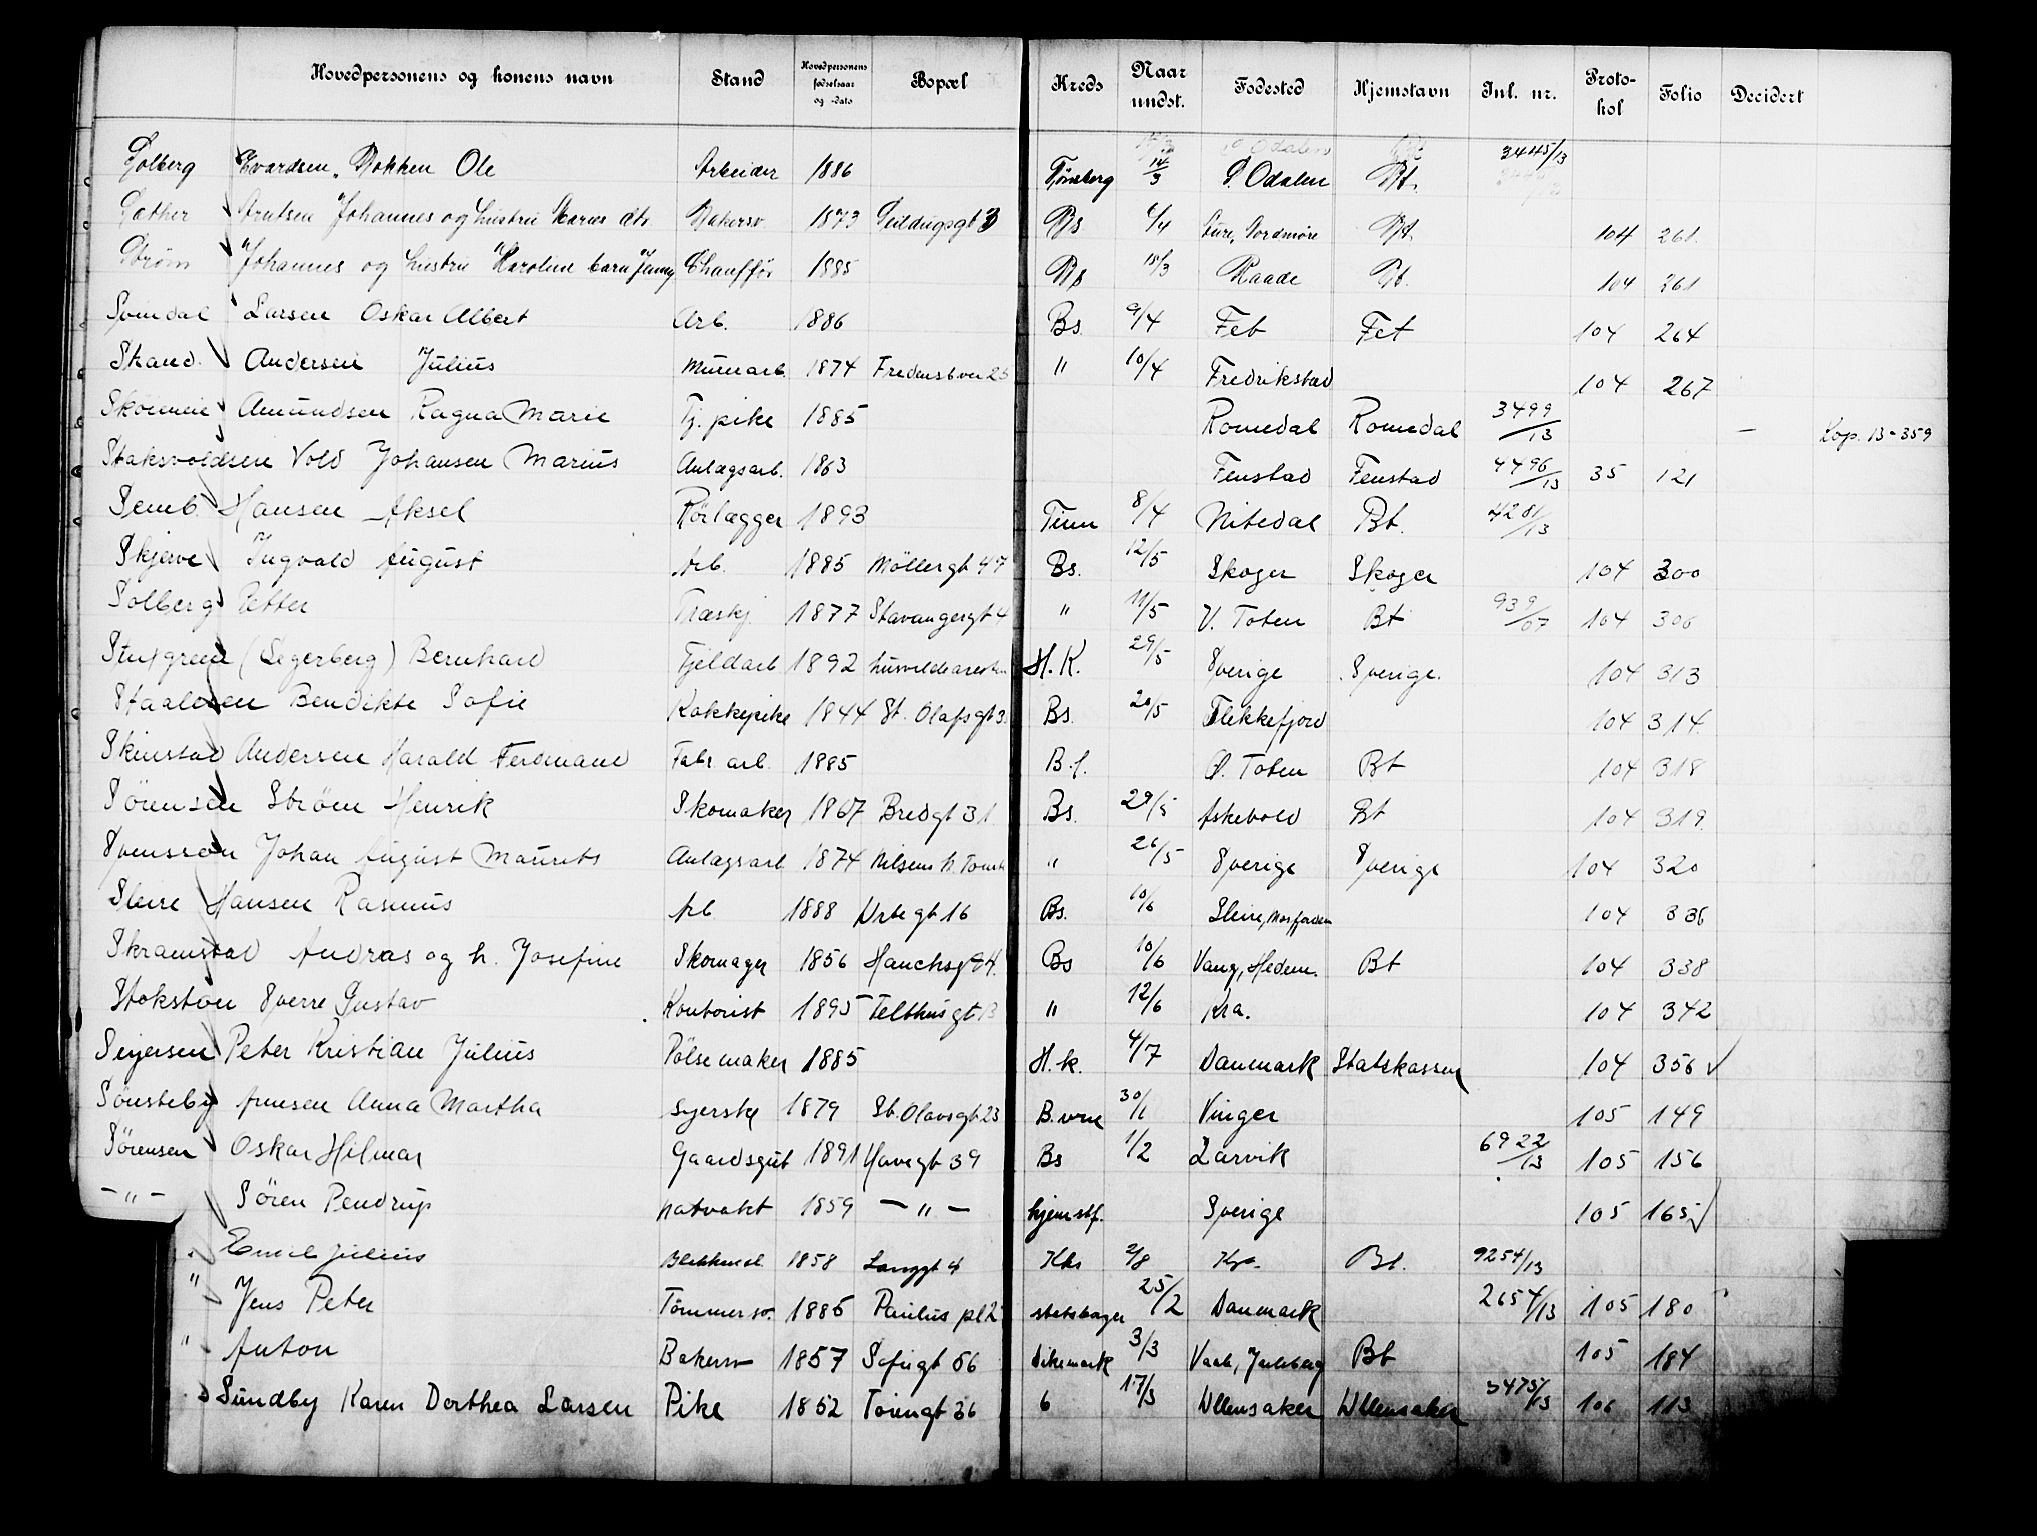 Hovedpersonens og konens navn Stand Hovedpersonens fødselsaar og -dato Bopæl Kreds Naar undst. Fødested Hjemstavn Inl. nr. Protokol Folio Decidert
Solberg Evardsen, Bakken Ole Arbeider 1886 Tønsberg 14/3 S. Odalen Bt. 3445/13
Sæther Arntsen Johannes og hustru Maren Bakersv 1873 Seildugsgt 3 Bs 4/4 Ture, Nordmøre Bt. 104 261
Strøm Johannes og hustru Karoline barn Jenny Chauffør 1885 Bs 15/3 Raade Bt. 104 261
Svindal Larsen Oskar Albert Arb. 1886 Bs. 9/4 Fet Fet 104 264
Strand Andersen Julius Murarb. 1874 Fredensb.vei 25 " 10/4 Fredrikstad 104 267
Amundsen Ragna Marie Tj. pike 1885 Romedal Romedal 3499/13 — Lop. 13-359
Staksvoldsen Vold Johansen Marius Anlægsarb. 1863 Fenstad Fenstad 4496/13 35 121
Semb Hansen Aksel Rörlægger 1893 Tinn 8/4 Nitedal Bt. 4281/13
Skjerve Ingvald August Arb. 1885 Möllergt 47 Bs. 12/5 Skoger Skoger 104 300
Solberg Petter Træskj 1877 Stavangergt 4 " 14/5 V. Toten Bt 939/07 104 306
Stufgreen (Segerberg) Bernhard Fjeldarb 1892 H. K. 29/5 Sverige Sverige. 104 313
Staalesen Bendikte Sofie Kokkepike 1844 St. Olafsgt 3. Bs. 20/5 Flekkefjord 104 314
Skinstad Andersen Harald Ferdinand Fabr. arb. 1885 B.f. Ø. Toten Bt 104 318
Sörensen Strøm Henrik Skomaker 1867 Bredgt 31 Bs. 29/5 Askevold Bt 104 319
Svensson Johan August Maurits Anlagsarb 1874 Nilsens h. " 26/5 Sverige Sverige 104 320
Sleire Hansen Rasmus Arb. 1888 Urtegt 16 Bs. 10/6 Sleire, 104 336
Skramstad Andras og h. Josefine Skomager 1856 Hauchsgt 4. Bs 10/6 Vang, Hedem. Bt 104 338
Stokston Sverre Gustav Kontorist 1895 Telthusgt 13 " 12/6 Kra. 104 342
Seyersen Peter Kristian Julius Pölsemaker 1885 H.k. 4/7 Danmark Statskassen 104 356
Sönsteby Arnesen Anna Martha Syerske 1879 St. Olavsgt 23 B. vrn 30/1 Vinger 105 149
Sörensen Oskar Hilmar Gaardsgut 1891 Havegt 39 Bs 1/2 Larvik 6922/13 105 156
— " — Sören Pendrup Natvakt 1859 — " — hjemstf. Sverige 105 165
" Emil Julius Blikkensl. 1858 Langgt 4 Khs 2/8 Kra. Bt. 9254/13
" Jens Peter Tömmersv. 1886 Paulus pl 2 statsborger 25/2 Danmark 2654/13 105 180
" Anton Bakersv 1857 Sofiegt 56 Dikemark 3/3 Vaale, Jarlsberg Bt 105 184
Sundby Karen Dorthea Larsen Pike 1852 Töiengt 36 6 17/3 Ullensaker Ullensaker 3475/13 106 113